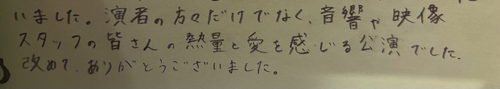 いました。演者の方々だけでなく、音響や映像
スタッフの皆さんの熱量と愛を感じる公演でした.
改めて、ありがとうございました。